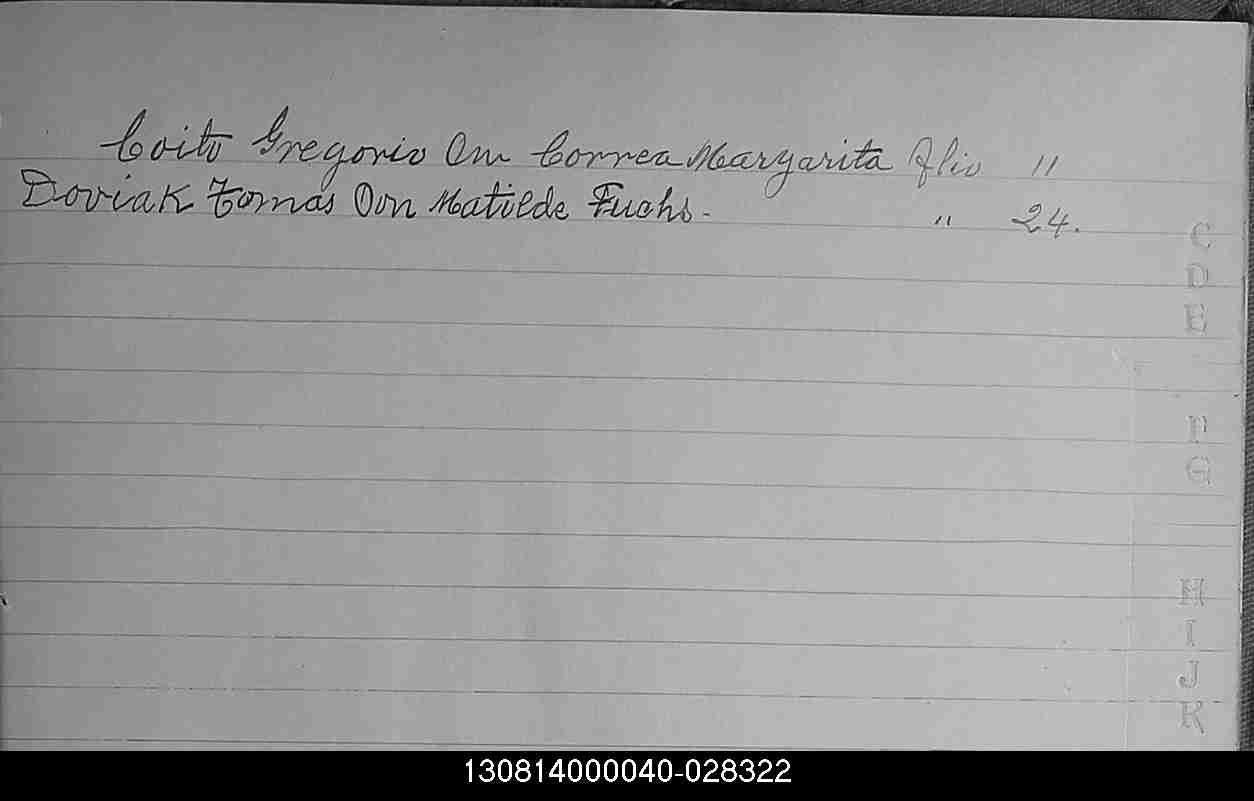 Coito Gregorio Con Correa Margarita flio 11
Doviak Tomas Con Matilde Fuchs. " 24.
C
D
E
F
G
H
I
J
K
130814000040-028322